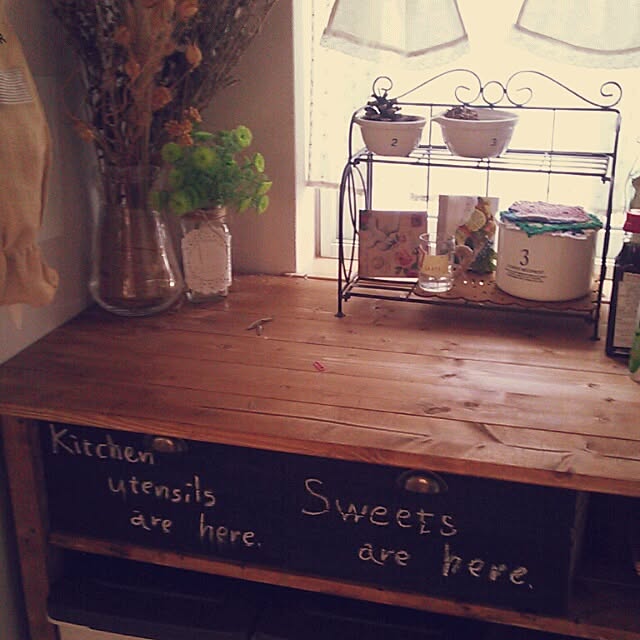 2
3
3
Kitchen
utensils
are here.
Sweets
are here.